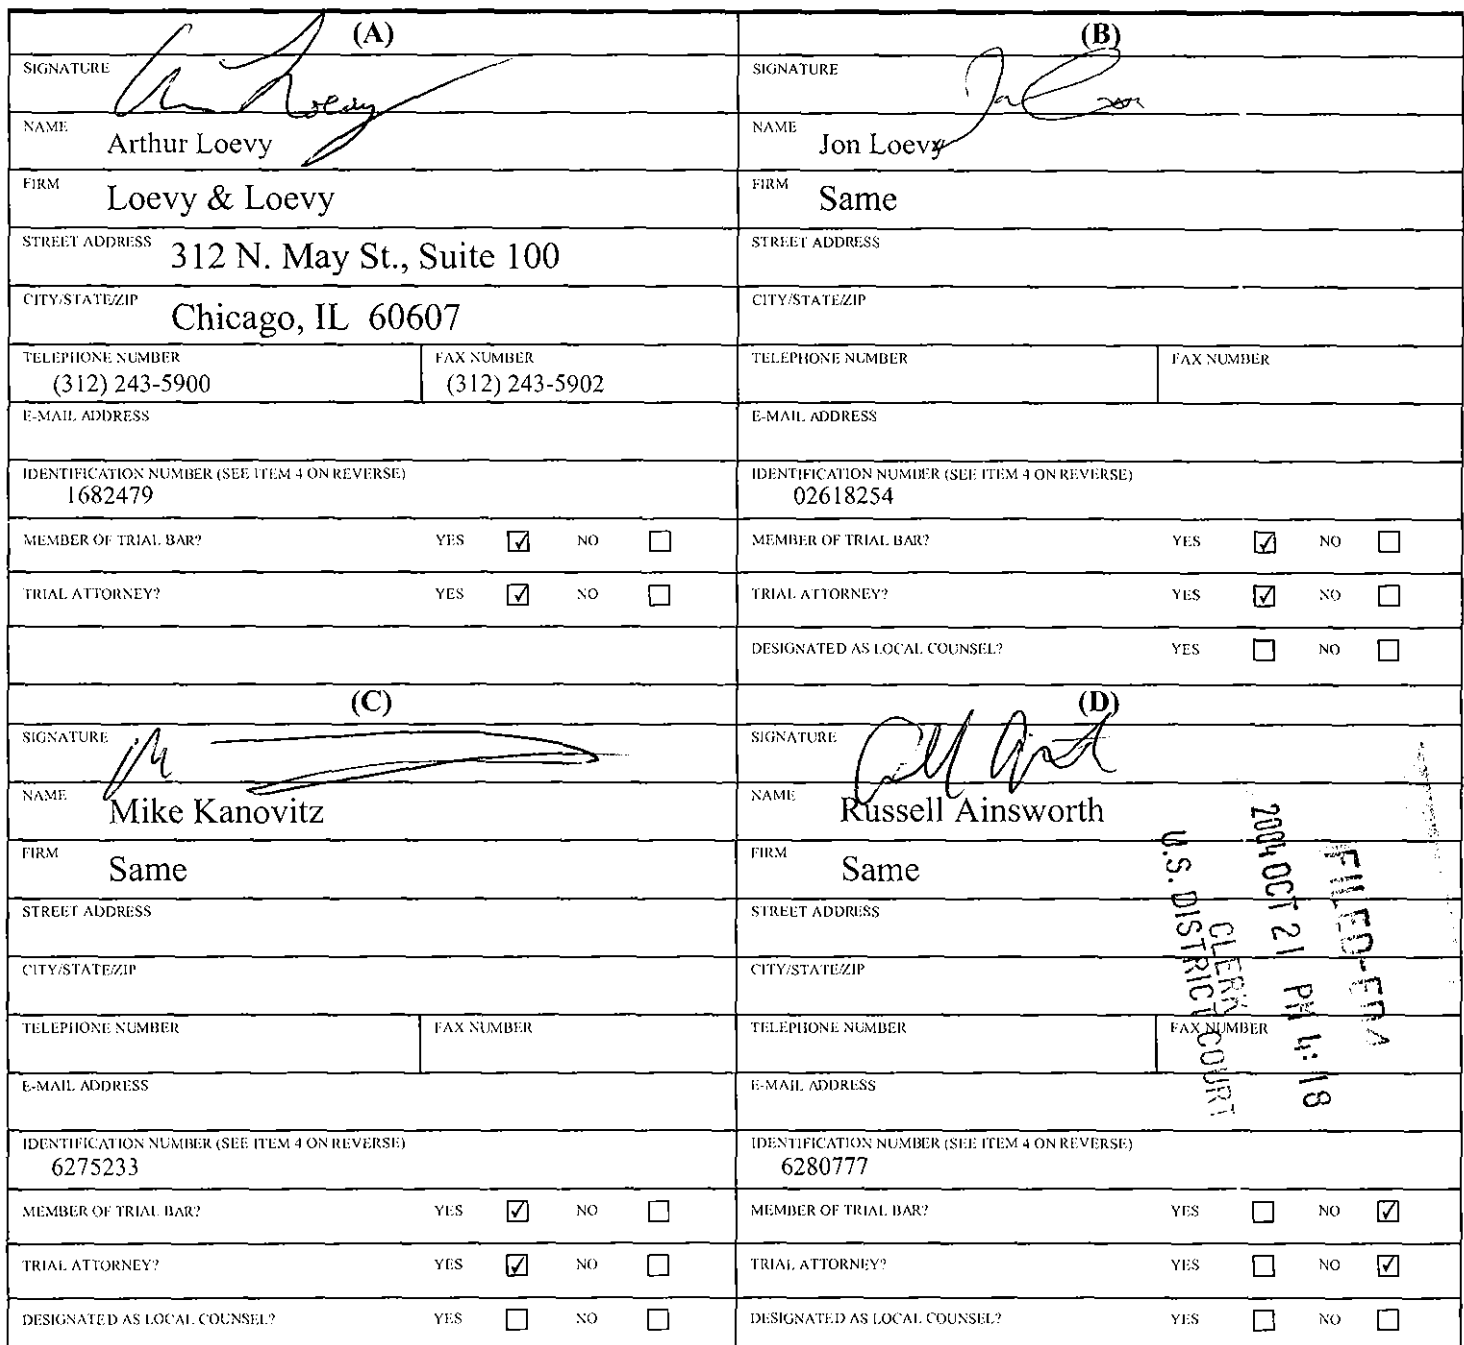 (A)
SIGNATURE
NAME
Arthur Loevy
FIRM
Loevy & Loevy
STREET ADDRESS
312 N. May St., Suite 100
CITY/STATE/ZIP
Chicago, IL 60607
TELEPHONE NUMBER
(312) 243-5900
FAX NUMBER
(312) 243-5902
E-MAIL ADDRESS
IDENTIFICATION NUMBER (SEE ITEM 4 ON REVERSE)
1682479
MEMBER OF TRIAL BAR? YES ☑ NO ☐
TRIAL ATTORNEY? YES ☑ NO ☐
(B)
SIGNATURE
NAME
Jon Loevy
FIRM
Same
STREET ADDRESS
CITY/STATE/ZIP
TELEPHONE NUMBER
FAX NUMBER
E-MAIL ADDRESS
IDENTIFICATION NUMBER (SEE ITEM 4 ON REVERSE)
02618254
MEMBER OF TRIAL BAR? YES ☑ NO ☐
TRIAL ATTORNEY? YES ☑ NO ☐
DESIGNATED AS LOCAL COUNSEL? YES ☐ NO ☐
(C)
SIGNATURE
NAME
Mike Kanovitz
FIRM
Same
STREET ADDRESS
CITY/STATE/ZIP
TELEPHONE NUMBER
FAX NUMBER
E-MAIL ADDRESS
IDENTIFICATION NUMBER (SEE ITEM 4 ON REVERSE)
6275233
MEMBER OF TRIAL BAR? YES ☑ NO ☐
TRIAL ATTORNEY? YES ☑ NO ☐
DESIGNATED AS LOCAL COUNSEL? YES ☐ NO ☐
(D)
SIGNATURE
NAME
Russell Ainsworth
FIRM
Same
STREET ADDRESS
CITY/STATE/ZIP
TELEPHONE NUMBER
FAX NUMBER
E-MAIL ADDRESS
IDENTIFICATION NUMBER (SEE ITEM 4 ON REVERSE)
6280777
MEMBER OF TRIAL BAR? YES ☐ NO ☑
TRIAL ATTORNEY? YES ☐ NO ☑
DESIGNATED AS LOCAL COUNSEL? YES ☐ NO ☐
FILED-
2004 OCT 21 PM 4:18
CLERK
U.S. DISTRICT COURT